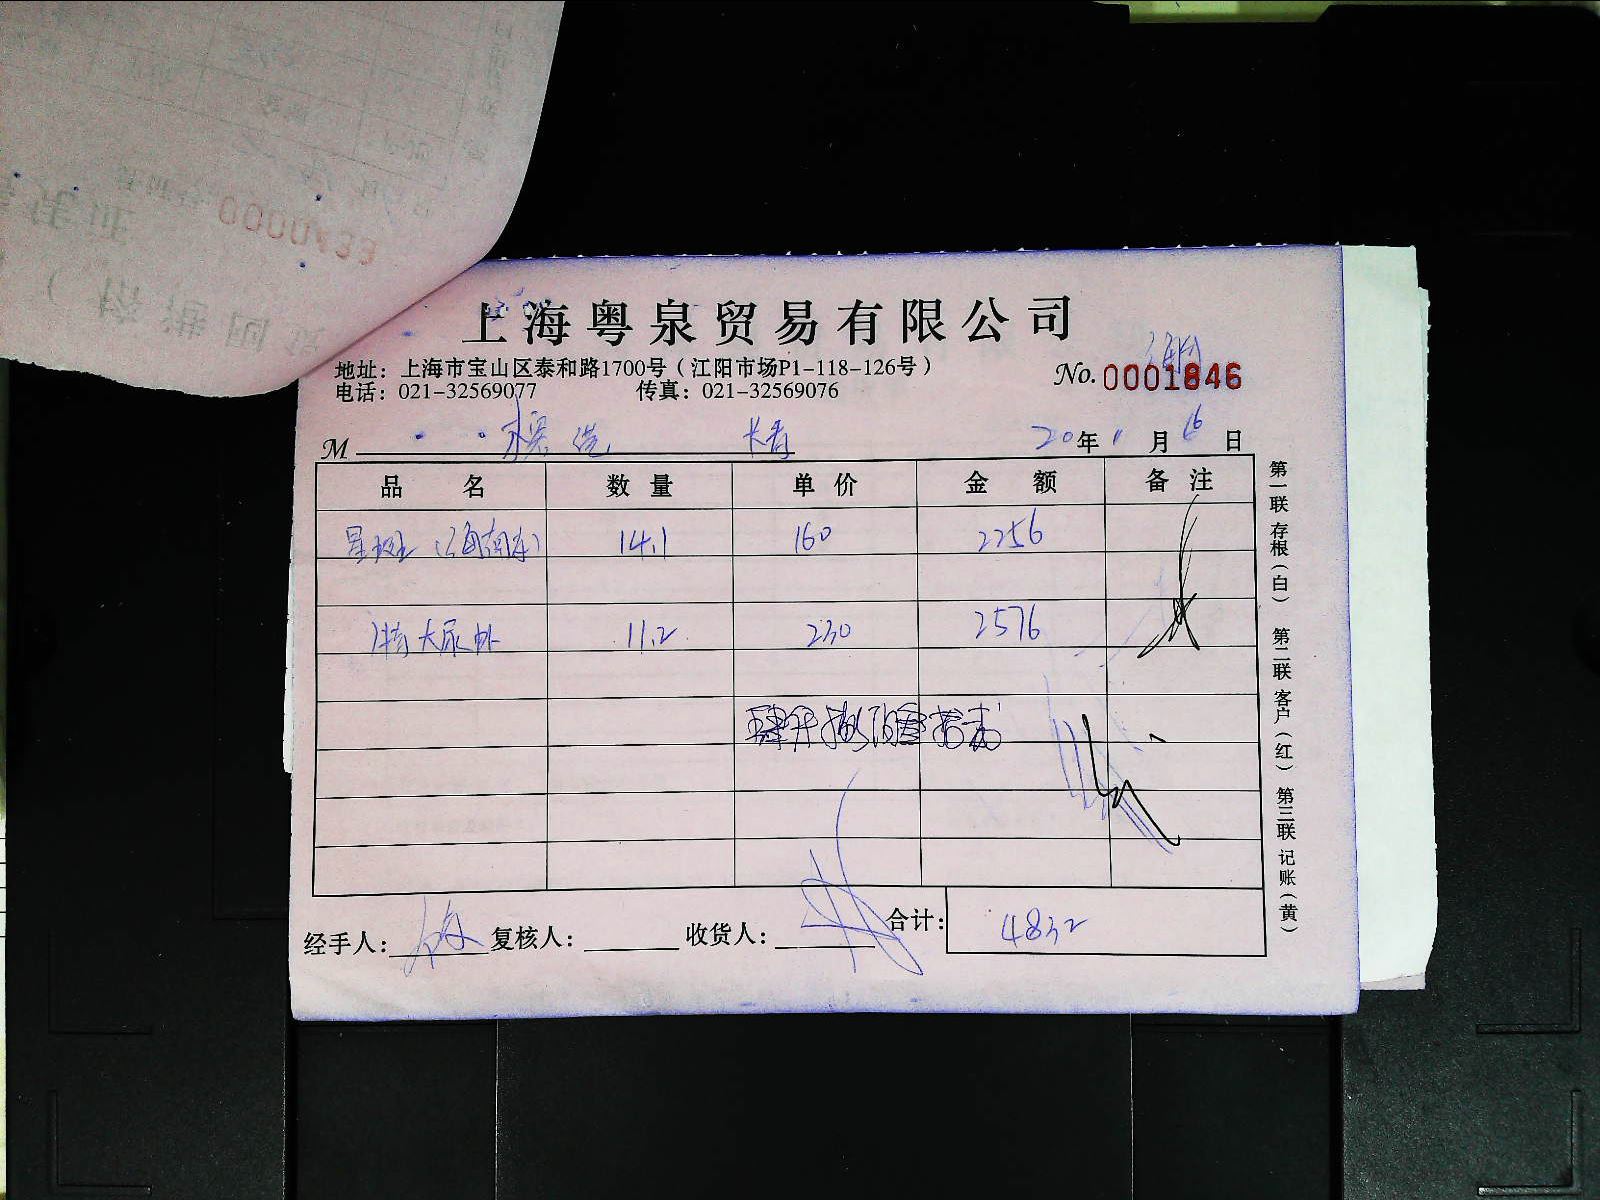 上海粤泉贸易有限公司
地址：上海市宝山区泰和路1700号（江阳市场P1-118-126号）
电话：021-32569077 传真：021-32569076
No. 0001846
M
20年1月16日
品名 数量 单价 金额 备注
星斑（海南车） 14.1 160 2256
特大尿虾 11.2 230 2576
肆仟捌佰叁拾贰
合计： 4832
经手人： 复核人： 收货人：
第一联存根（白） 第二联客户（红） 第三联记账（黄）
0000433